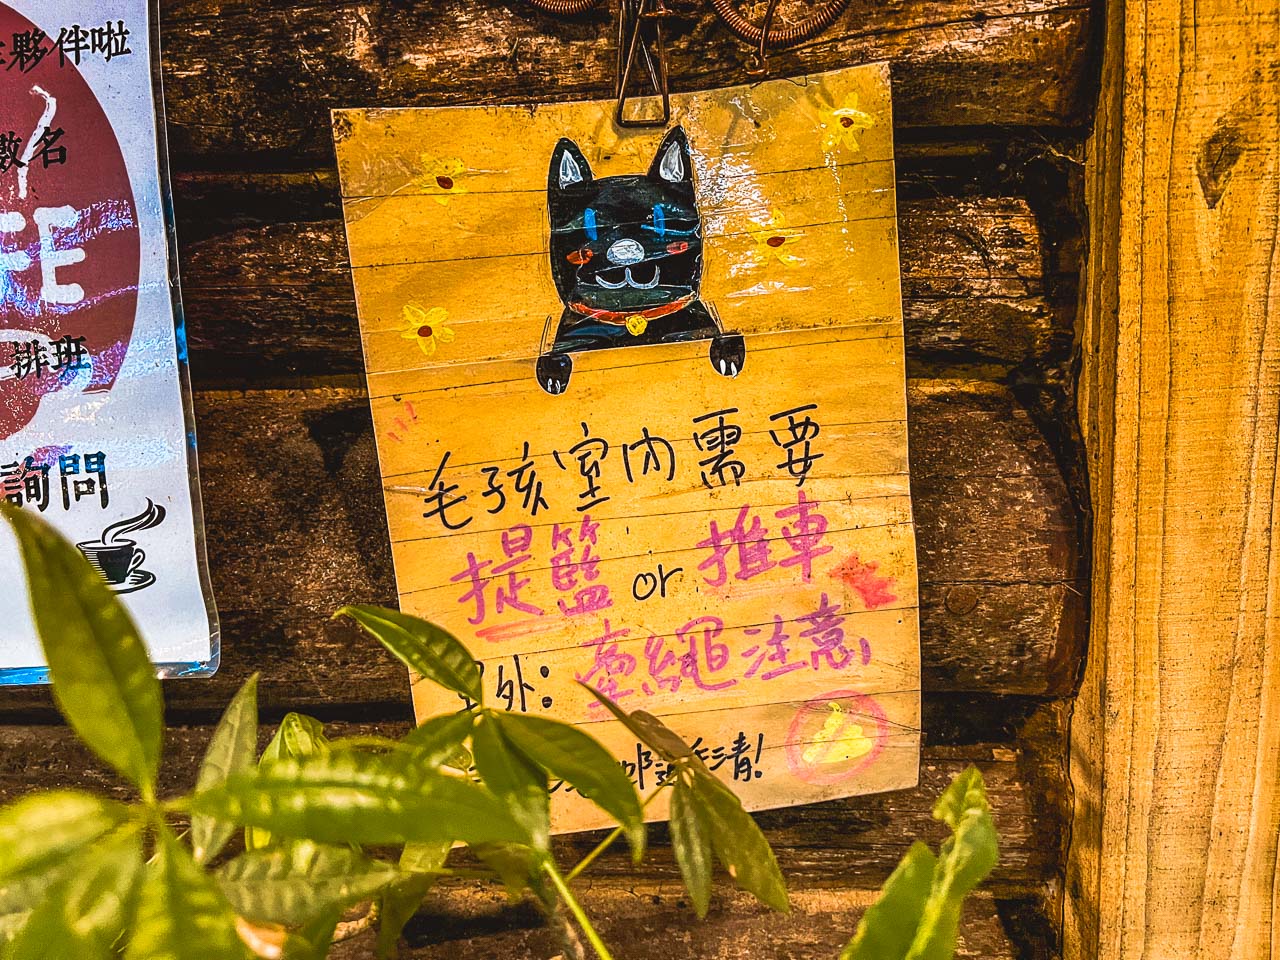 夥伴啦
數名
FE
排班
詢問
毛孩室內需要
提籃 or 推車
外: 牽繩注意
隨手清!